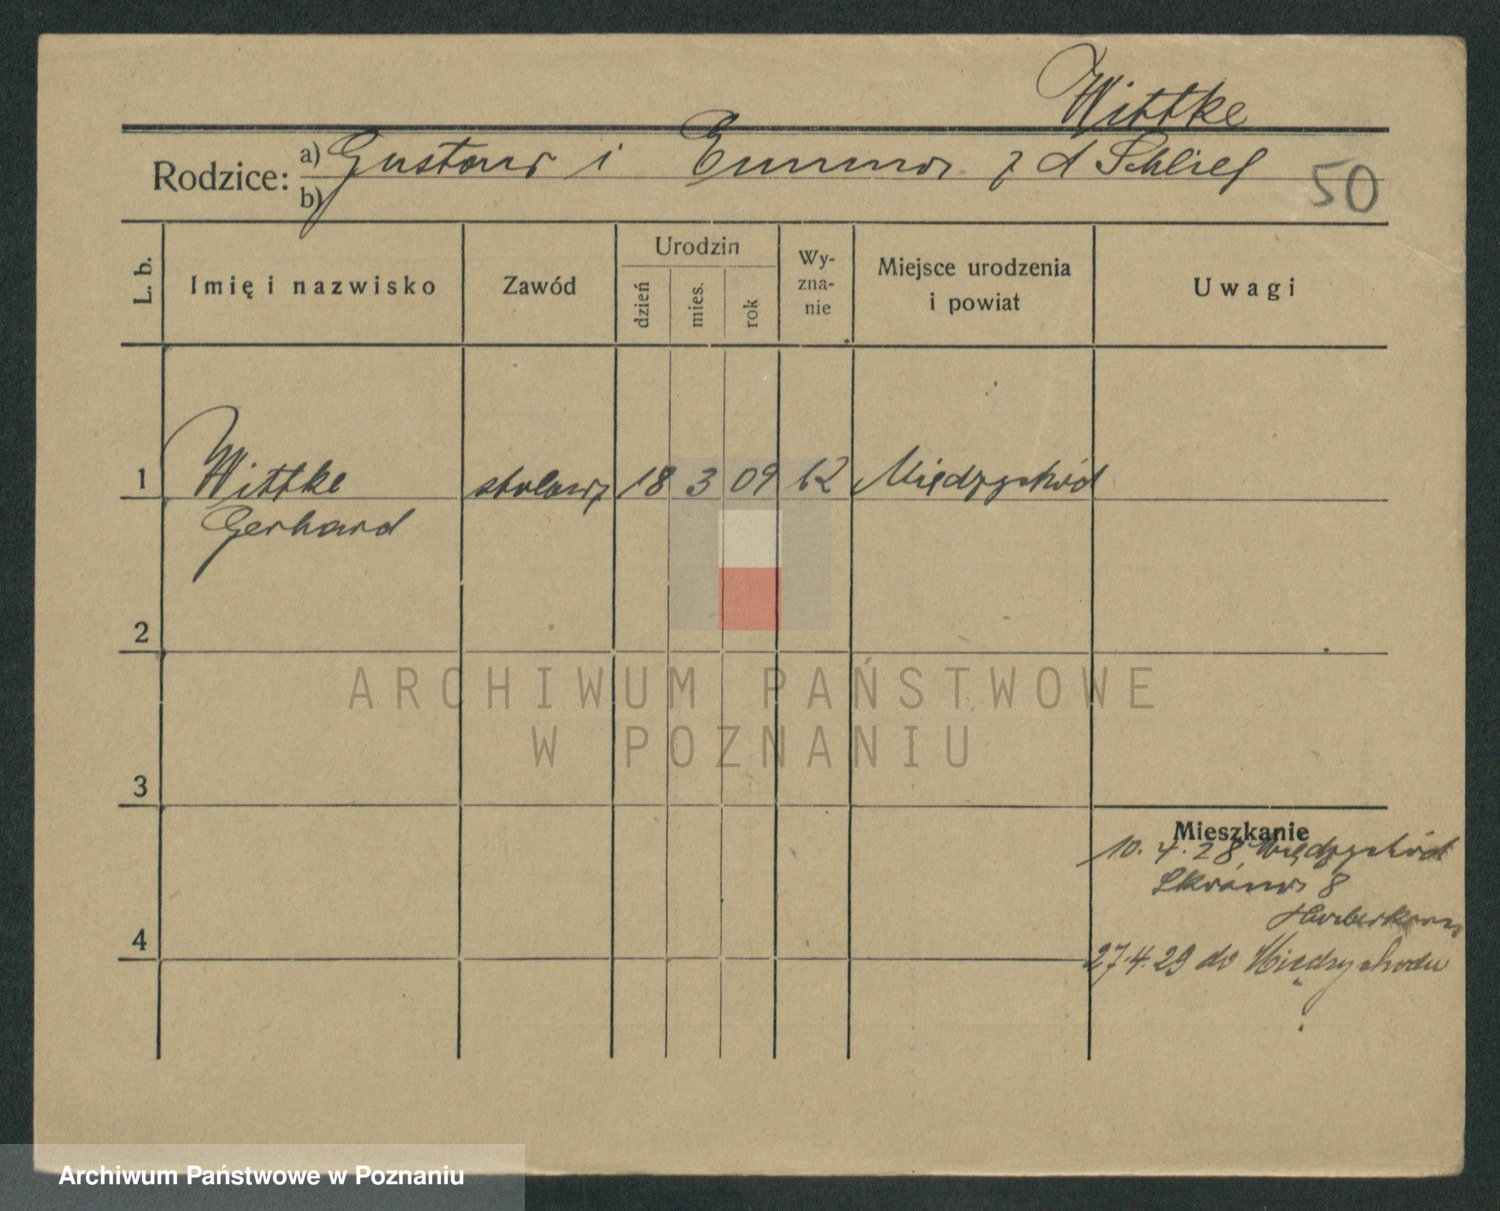 Wittke
Rodzice: a) Gustaw i Emma z d Schlief
b)
50
L. b.
Imię i nazwisko
Zawód
Urodzin
dzień
mies.
rok
Wy-
zna-
nie
Miejsce urodzenia
i powiat
Uwagi
1 Wittke stolarz 18 3 09 Międzychód
Gerhard
2
ARCHIWUM PAŃSTWOWE
W POZNANIU
3
Mieszkanie
10.4.28 Międzychód
8
4
27.4.29 do Międzychodu
Archiwum Państwowe w Poznaniu